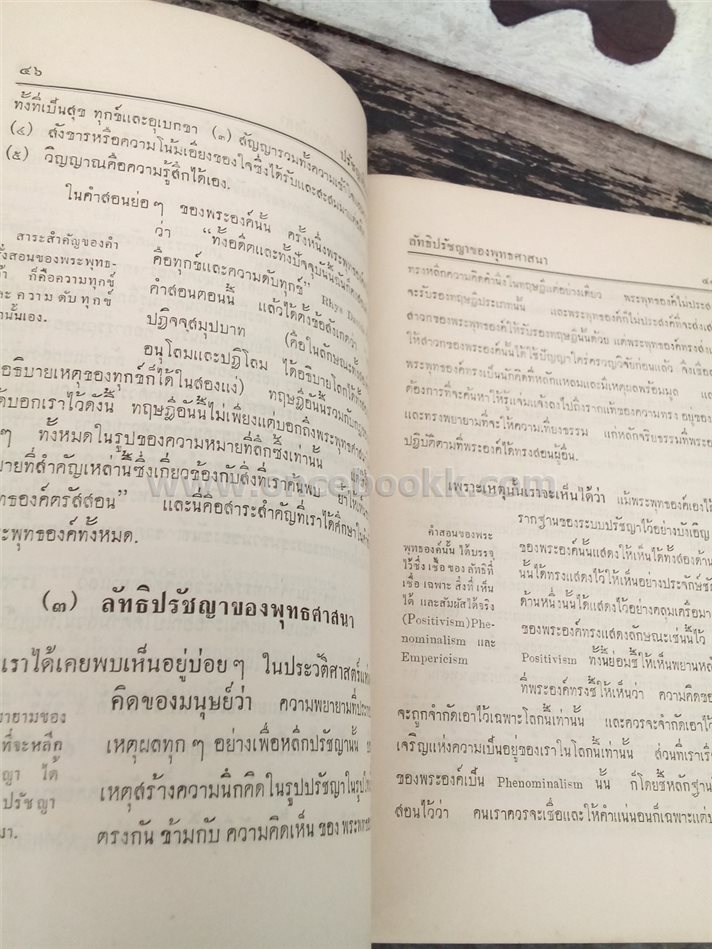 ๔๖
ทั้งที่เป็นสุข ทุกข์และอุเบกขา (๓) สัญญารวมทั้งความเข้าใจ
(๔) สังขารหรือความโน้มเอียงของใจซึ่งได้รับและสะสมมา
(๕) วิญญาณคือความรู้สึกได้เอง.
ในคำสอนย่อๆ ของพระองค์นั้น ครั้งหนึ่งพระพุทธ
สาระสำคัญของคำ
ว่า “ทั้งอดีตและทั้งปัจจุบันนั้น
สั่งสอนของพระพุทธ-
คือทุกข์และความดับทุกข์” Rhys
ก็คือความทุกข์
คำสอนตอนนี้ แล้วได้ตั้งข้อสังเกตว่า
และ ความ ดับ ทุกข์
ปฏิจจสมุปบาท (คือในลักษณะ
เท่านั้นเอง.
อนุโลมและปฏิโลม ได้อธิบายโลก
อธิบายเหตุของทุกข์ก็ได้ในสองแง่) ทฤษฎีอันนี้รวมกับ
ได้บอกเราไว้ดังนี้ ทฤษฎีอันนี้ไม่เพียงแต่บอกถึงพระพุทธศาสนา
ๆ ทั้งหมดในรูปของความหมายที่ลึกซึ้งเท่านั้น
หมายที่สำคัญเหล่านี้ซึ่งเกี่ยวข้องกับสิ่งที่เราค้นพบ
พุทธองค์ตรัสสอน” และนี่คือสาระสำคัญที่เราได้ศึกษาใน
พระพุทธองค์ทั้งหมด.
(๓) ลัทธิปรัชญาของพุทธศาสนา
เราได้เคยพบเห็นอยู่บ่อยๆ ในประวัติศาสตร์แห่ง
คิดของมนุษย์ว่า ความพยายามที่
พยายามของ
เหตุผลทุกๆ อย่างเพื่อหลีกปรัชญานั้น
ที่จะหลีก
เหตุสร้างความนึกคิดในรูปปรัชญาในรูป
ได้
ตรงกัน ข้ามกับ ความคิดเห็น ของ พระ
ปรัชญา
มา.
ลัทธิปรัชญาของพุทธศาสนา
ทรงหลีกความคิดคำนึงในทฤษฎีแต่อย่างเดียว พระพุทธองค์ไม่ประสงค์
จะรับรองทฤษฎีประเภทนั้น และพระพุทธองค์ก็ไม่ประสงค์ที่จะส่งเสริม
สาวกของพระองค์ให้รับรองทฤษฎีนั้นด้วย แต่พระพุทธองค์ทรง
ให้สาวกของพระองค์นั้นได้ใช้ปัญญาใคร่ครวญวิจัยก่อนแล้ว จึงเชื่อ
พระพุทธองค์ทรงเป็นนักคิดที่หลักแหลมและมีเหตุผลพร้อมมูล และ
ต้องการที่จะค้นหาให้รู้แจ่มแจ้งลงไปถึงรากแท้ของความทรง อยู่ของ
และทรงพยายามที่จะให้ความเที่ยงธรรม แก่หลักจริยธรรมที่พระองค์
ปฏิบัติตามที่พระองค์ได้ทรงสอนผู้อื่น.
www.oncebookk.com
เพราะเหตุนั้นเราจะเห็นได้ว่า แม้พระพุทธองค์เอง
คำสอนของพระ
รากฐานของระบบปรัชญาไว้อย่างบังเอิญ
พุทธองค์นั้น ได้บรรจุ
ของพระองค์นั้นแสดงให้เห็นได้ทั้งสองด้าน
ไว้ซึ่ง เชื้อ ของ ลัทธิที่
นั้นได้ทรงแสดงไว้ให้เห็นอย่างประจักษ์ชัด
เชื่อ เฉพาะ สิ่งที่ เห็น
ด้านหนึ่งนั้นได้แสดงไว้อย่างคลุมเครือ
ได้ และสัมผัสได้จริง
ของพระองค์ทรงแสดงลักษณะเช่นนี้ไว้
(Positivism)Phe-
Positivism ทั้งนี้ย่อมชี้ให้เห็นพยาน
nominalism และ
ที่พระองค์ทรงชี้ให้เห็นว่า ความคิดของ
Empericism
จะถูกจำกัดเอาไว้เฉพาะโลกนี้เท่านั้น และควรจะจำกัดเอาไว้
เจริญแห่งความเป็นอยู่ของเราในโลกนี้เท่านั้น ส่วนที่เรา
ของพระองค์เป็น Phenominalism นั้น ก็โดยชี้หลักฐาน
สอนไว้ว่า คนเราควรจะเชื่อและให้คำแน่นอนก็เฉพาะแต่